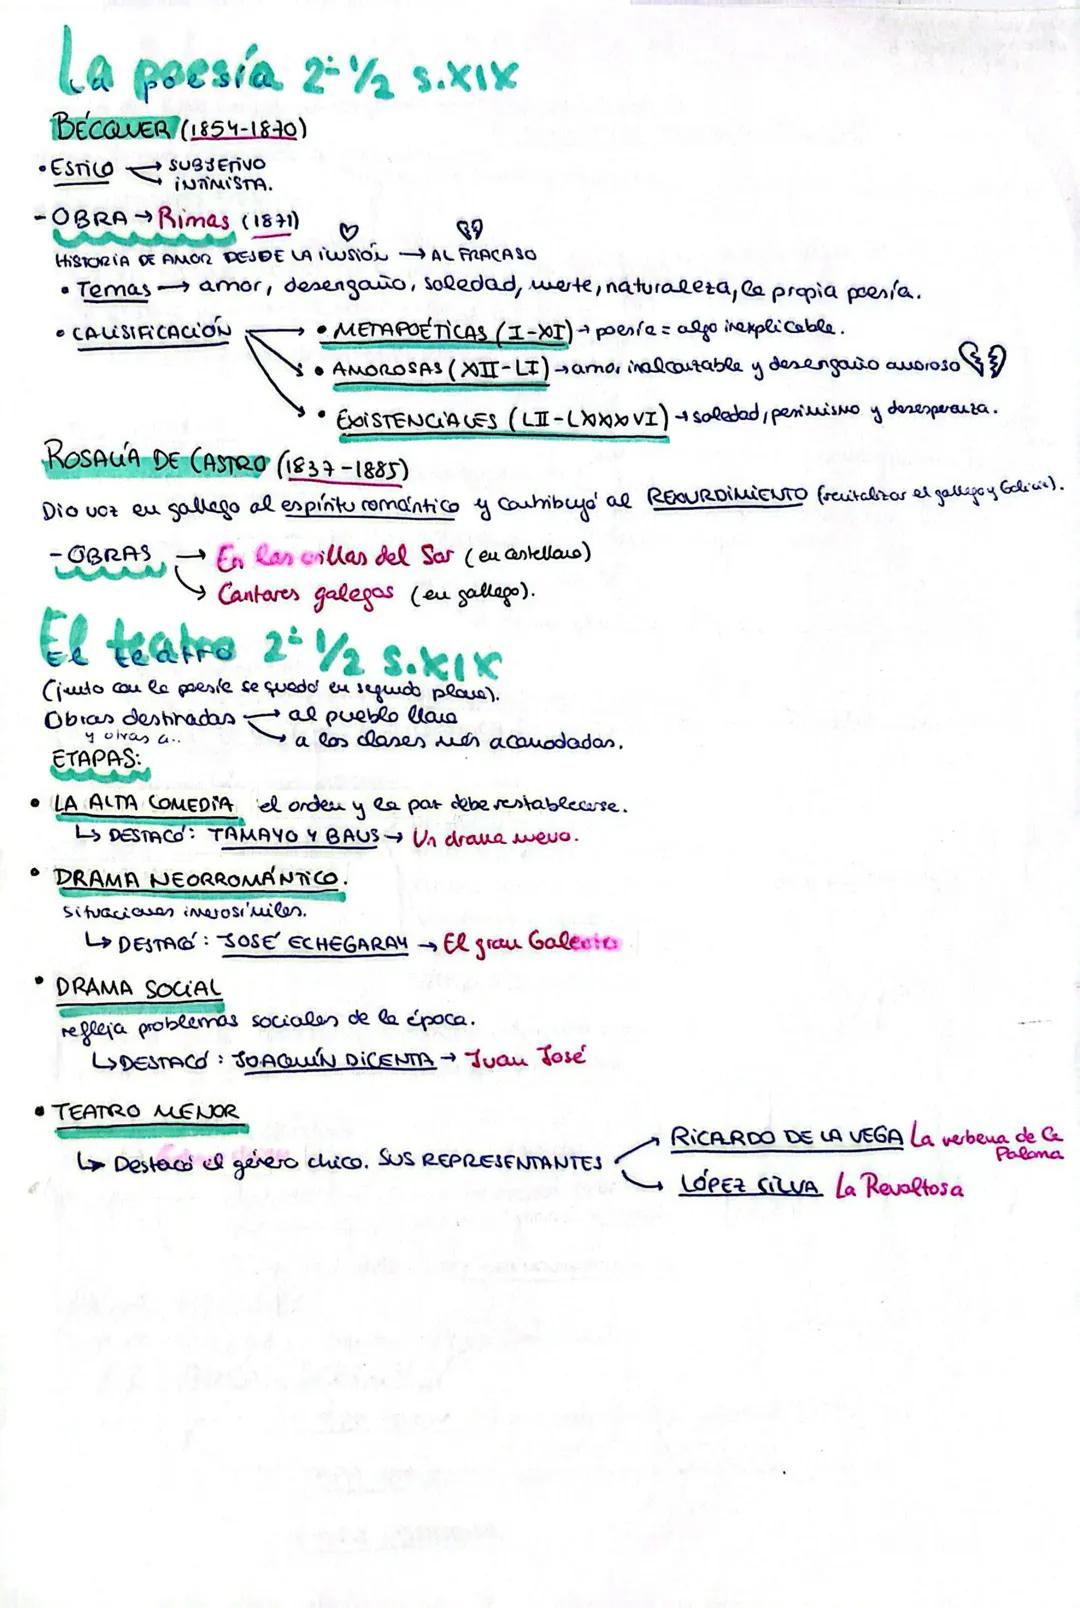 La poesía 2ª 1/2 s.XIX
BÉCQUER (1854-1870)
• ESTILO → SUBJETIVO
→ INTIMISTA.
- OBRA → Rimas (1871)
HISTORIA DE AMOR DESDE LA ILUSIÓN → AL FRACASO
• Temas → amor, desengaño, soledad, muerte, naturaleza, la propia poesía.
• CALISIFICACIÓN → • METAPOÉTICAS (I-XI) → poesía = algo inexplicable.
• AMOROSAS (XII-LI) → amor inalcanzable y desengaño amoroso
• EXISTENCIALES (LII-LXXXVI) → soledad, pesimismo y desesperanza.
ROSALÍA DE CASTRO (1837-1885)
Dio voz en gallego al espíritu romántico y contribuyó al REXURDIMIENTO (revitalizar el gallego y Galicia).
- OBRAS → En las orillas del Sar (en castellano)
→ Cantares galegos (en gallego).
El teatro 2ª 1/2 s.XIX
(junto con la poesía se quedó en segundo plano).
Obras destinadas → al pueblo llano
y otras a.. → a las clases más acomodadas.
ETAPAS:
• LA ALTA COMEDIA el orden y la paz debe restablecerse.
↳ DESTACÓ: TAMAYO Y BAUS → Un drama nuevo.
• DRAMA NEORROMÁNTICO.
situaciones inverosímiles.
↳ DESTACÓ: JOSÉ ECHEGARAY → El gran Galeoto
• DRAMA SOCIAL
refleja problemas sociales de la época.
↳ DESTACÓ: JOAQUÍN DICENTA → Juan José
• TEATRO MENOR
↳ Destacó el género chico. SUS REPRESENTANTES → RICARDO DE LA VEGA La verbena de la Paloma
→ LÓPEZ SILVA La Revoltosa